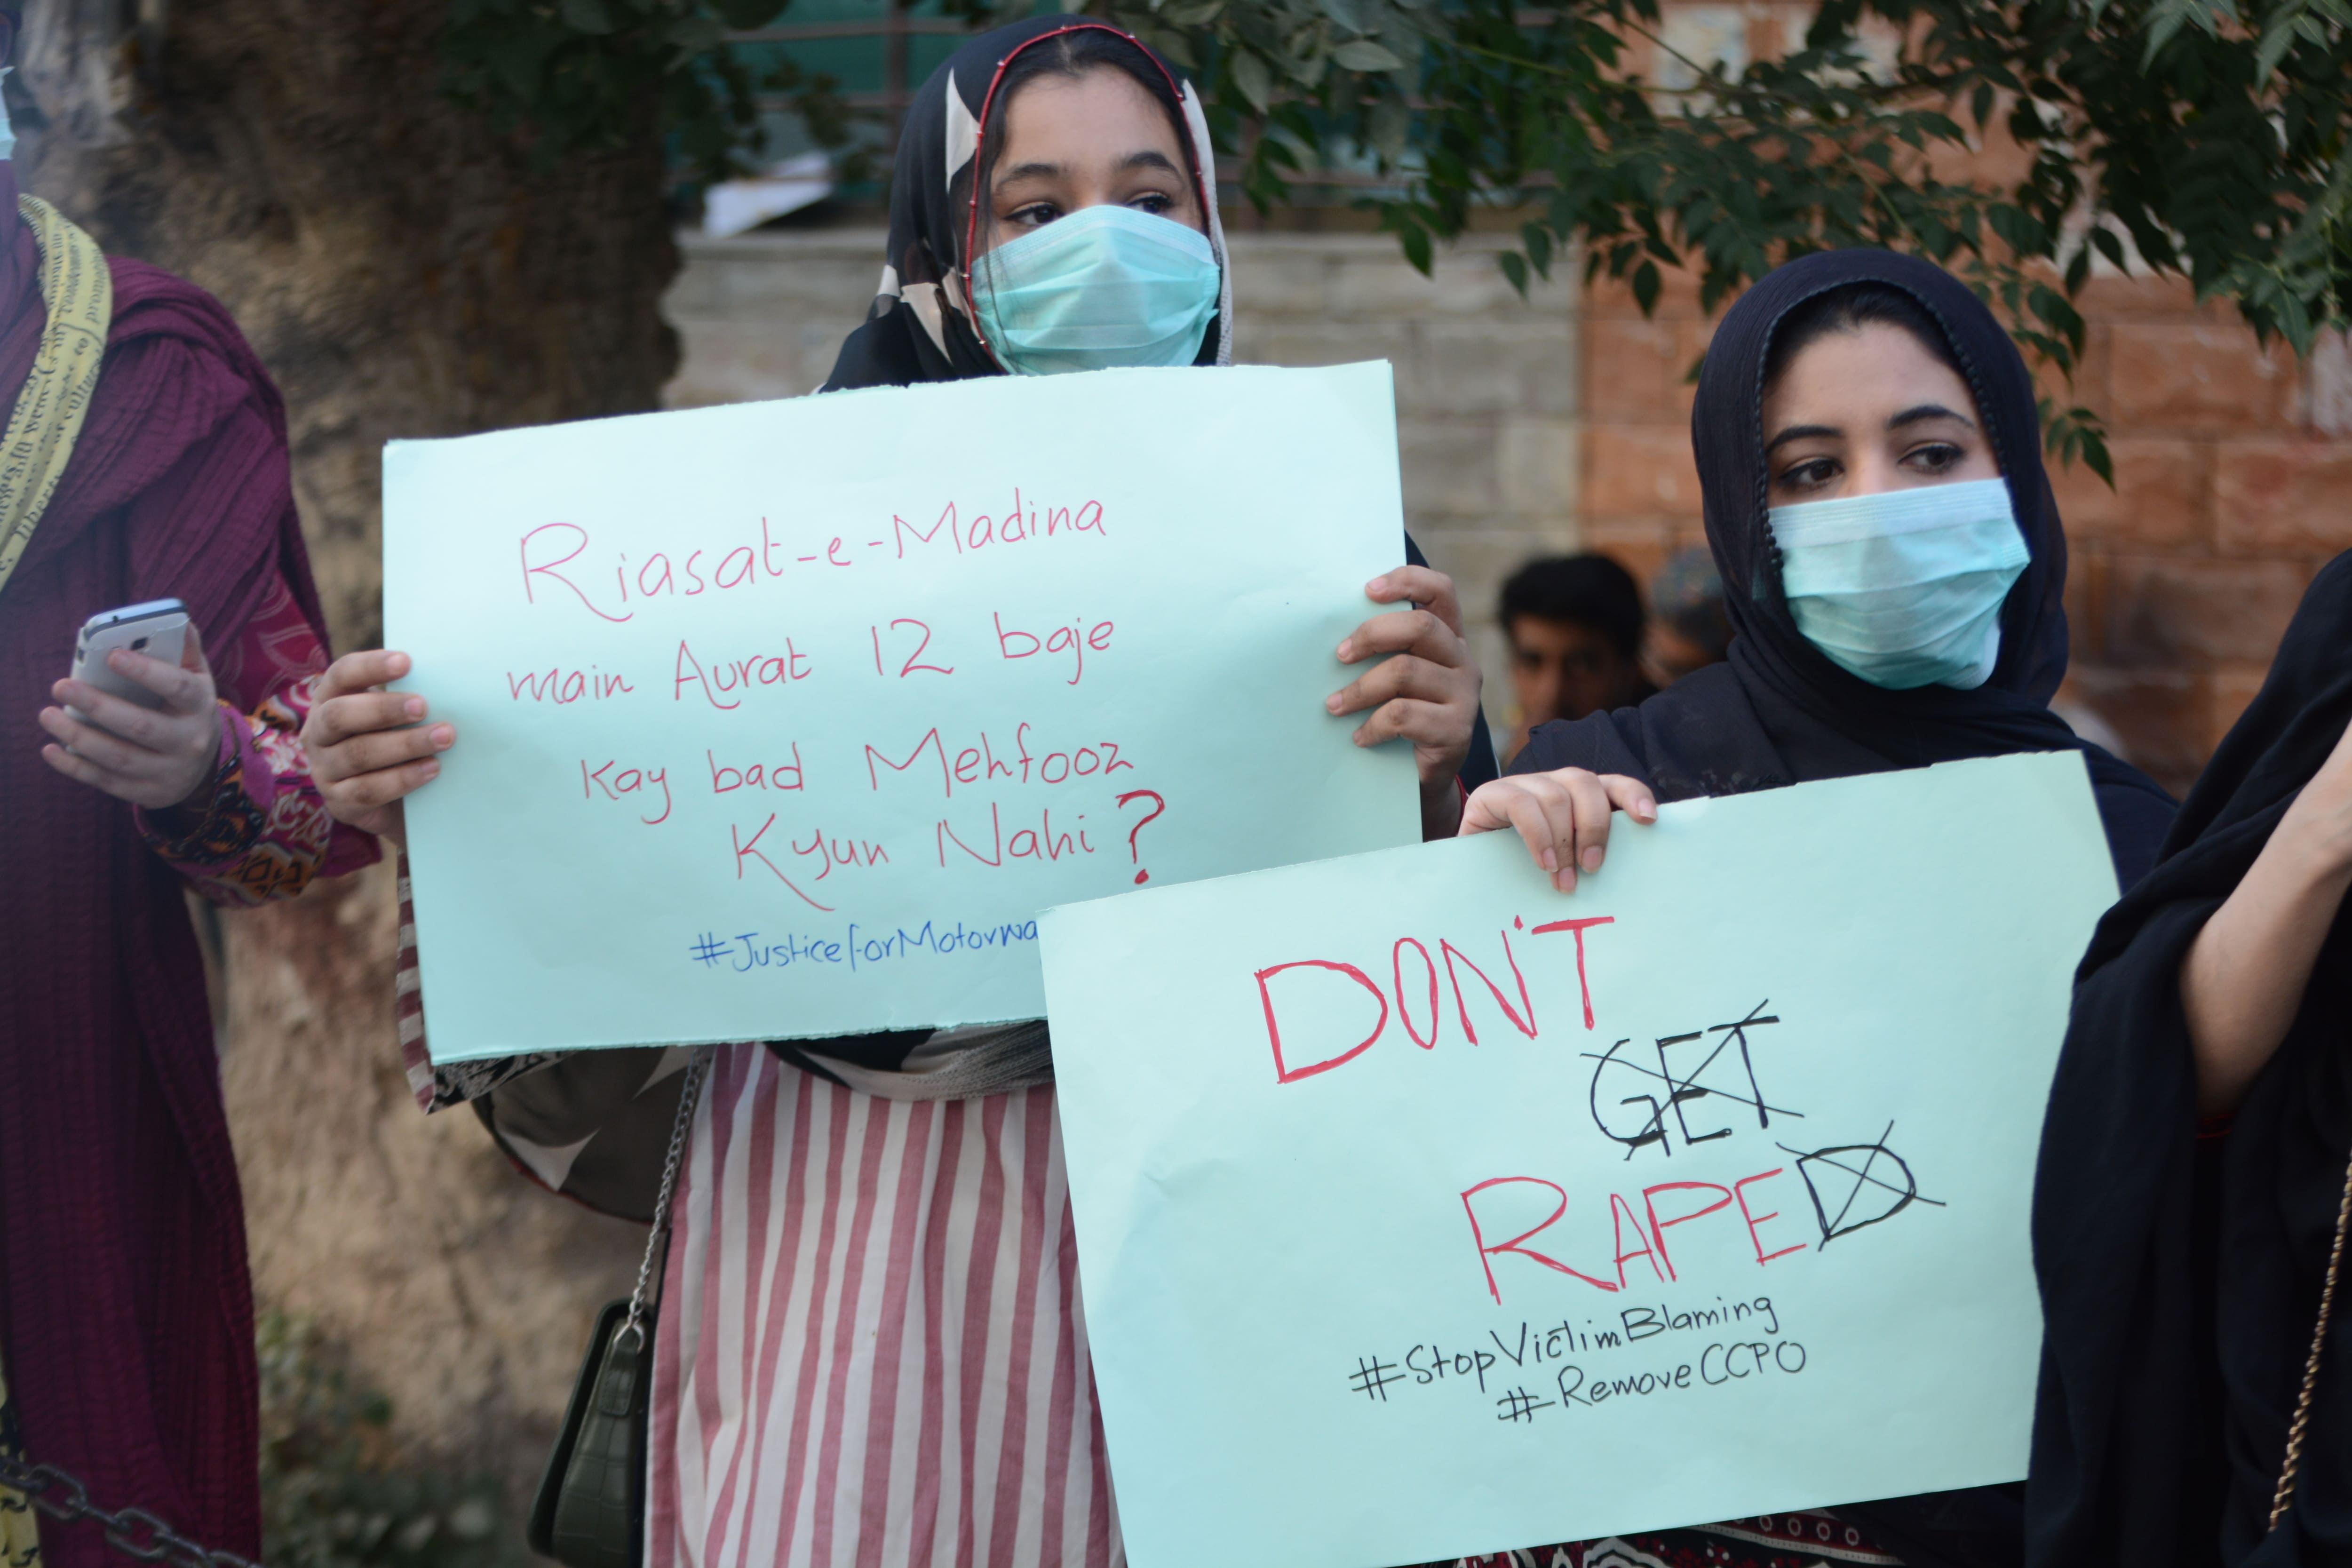 Riasat-e-Madina
main Aurat 12 baje
Kay bad Mehfooz
Kyun Nahi?
#JusticeforMotorwa
DON'T
GET
RAPED
#StopVictimBlaming
#RemoveCCPO